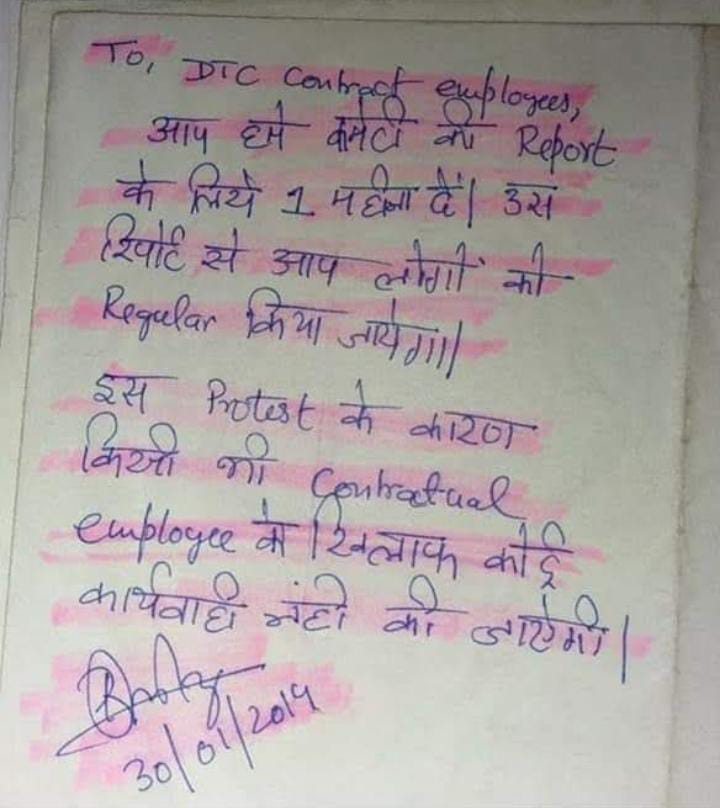 To, DTC Contract employees,
आप हमे कमेटी की Report
के लिये 1 महीना दें। उस
रिपोर्ट से आप लोगों को
Regular किया जायेगा।
इस Protest के कारण
किसी भी Contratual
employee के खिलाफ कोई
कार्यवाही नंही की जाऐगी।
30/01/2014